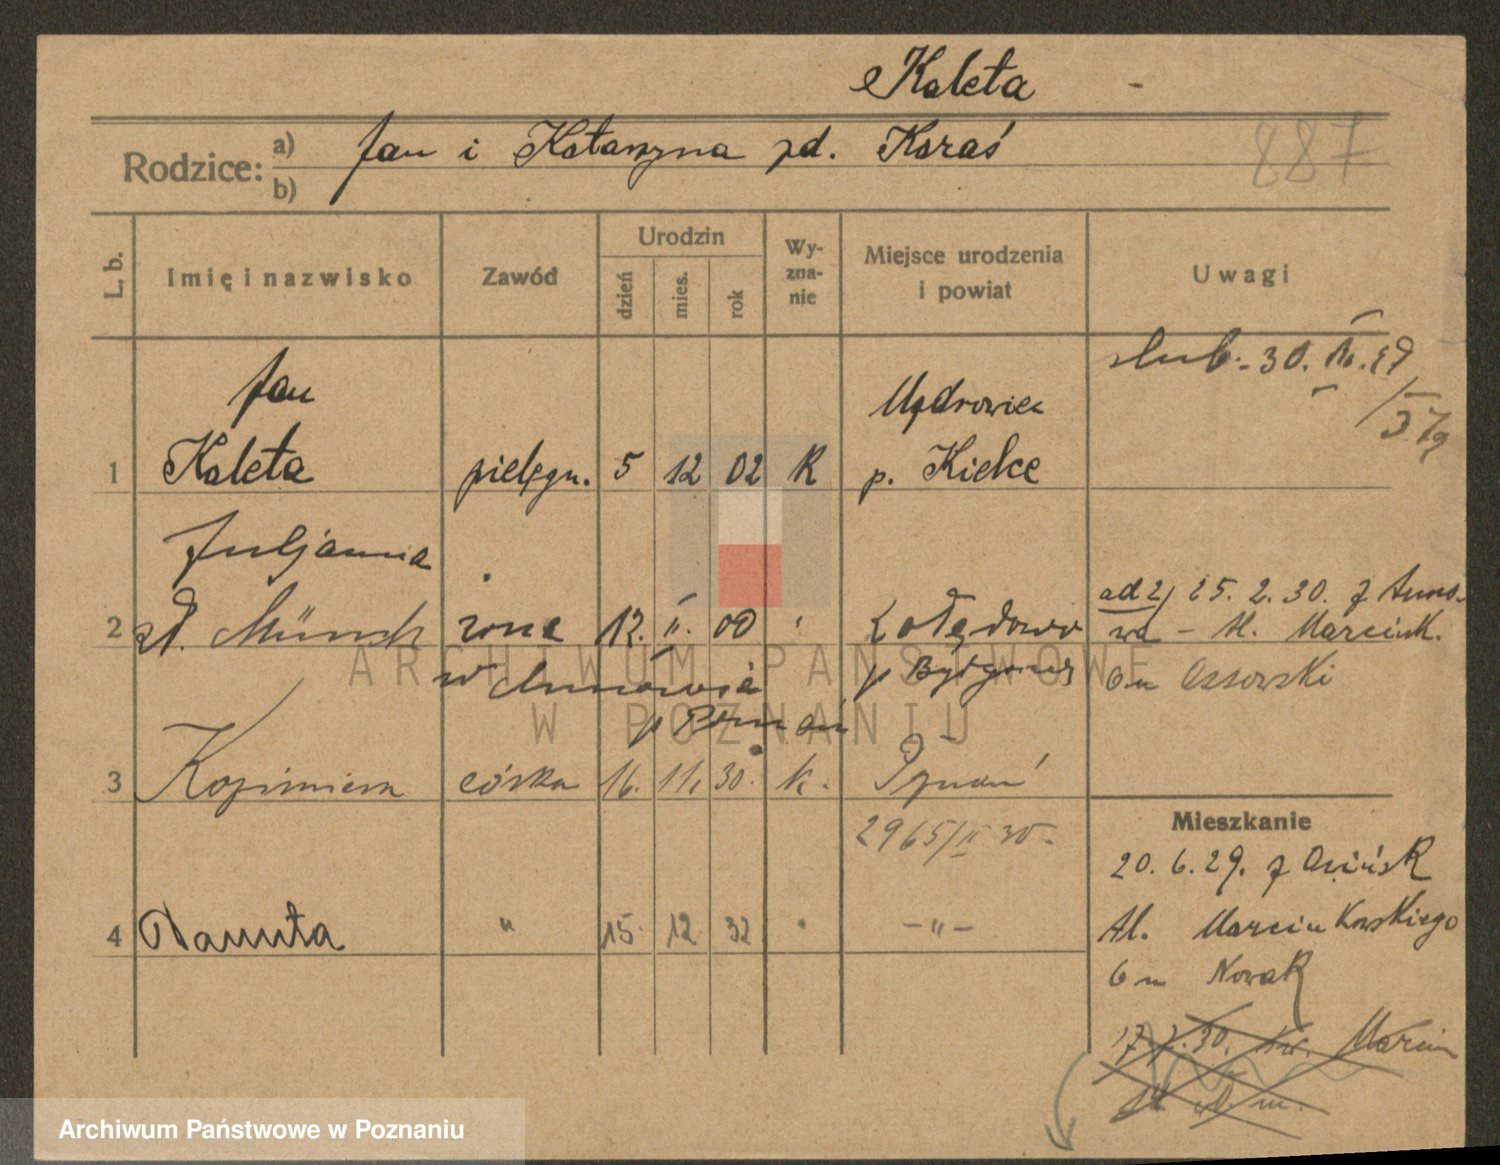 Kaleta
887
Rodzice: a) Jan i Katarzyna zd. Karaś
b)
L. b. Imię i nazwisko Zawód Urodzin dzień mies. rok Wyznanie Miejsce urodzenia i powiat Uwagi
ślub. 30. 29
Jan
1 Kaleta pielęgn. 5 12 02 R
Mądrowiec
p. Kielce
Juljanna
2 zd. Münch żona 12. II. 00 "
Żołędowo
p Bydgoszcz
ad 2) 25. 2. 30. z Anno-
wa - Al. Marcink.
6 m Ossowski
w Annowie
p Poznań
3 Kazimiera córka 16. 11. 30. k. Poznań
2965/II 30.
4 Danuta " 15. 12. 32 " -"-
Mieszkanie
20. 6. 29. z Osińsk
Al. Marcinkowskiego
6 m Nowak
17. 30. Marcin
m.
ARCHIWUM PAŃSTWOWE
W POZNANIU
Archiwum Państwowe w Poznaniu